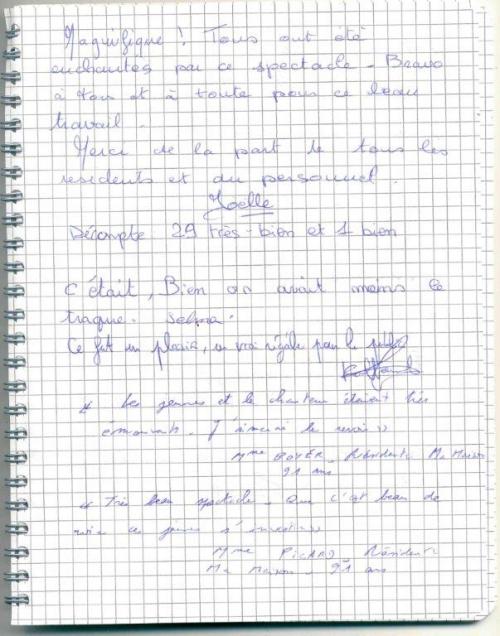 Magnifique ! Tous ont été
enchantés par ce spectacle - Bravo
à tous et à toute pour ce beau
travail.
Merci de la part de tous les
residents et du personnel.
Joelle
Décompte 29 très-bien et 1 bien
C'était, Bien on avait moins le
traque. Selma.
Ce fut un plaisir, un vrai régale pour le
" Les jeunes et le chanteur étaient très
émouvants. J'aimerai le revoir »
Mme BOYER - Résidente Ma Maison
91 ans
" Très beau spectacle. Que c'est beau de
voir ces jeunes s'investir »
Mme PICARD - Résidente
Ma Maison - 91 ans